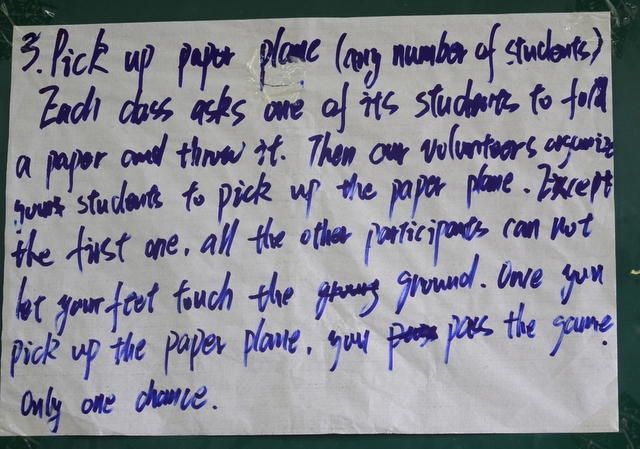 3. Pick up paper plane (any number of students)
Each class asks one of its students to fold
a paper and throw it. Then our volunteers organize
students to pick up the paper plane. Except
the first one, all the other participants can not
let your feet touch the ground. Once you
pick up the paper plane, you pass the game.
Only one chance.